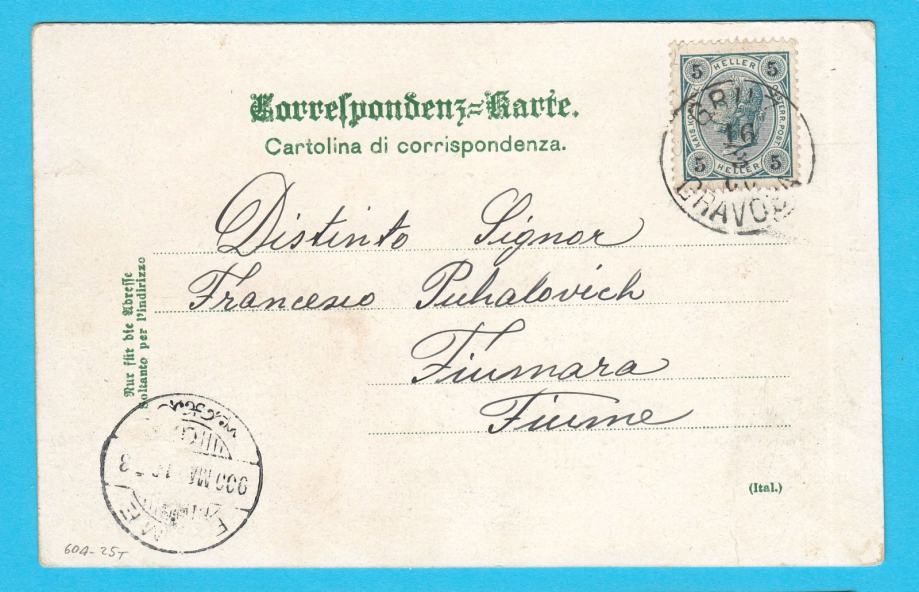 Correspondenz-Karte.
Cartolina di corrispondenza.
5 HELLER 5
5 HELLER 5
16
3
GRAVOSA
Distinto Signor
Francesco Puhalovich
Fiumara
Fiume
Nur für die Adresse
Soltanto per l'indirizzo
(Ital.)
60A-25T